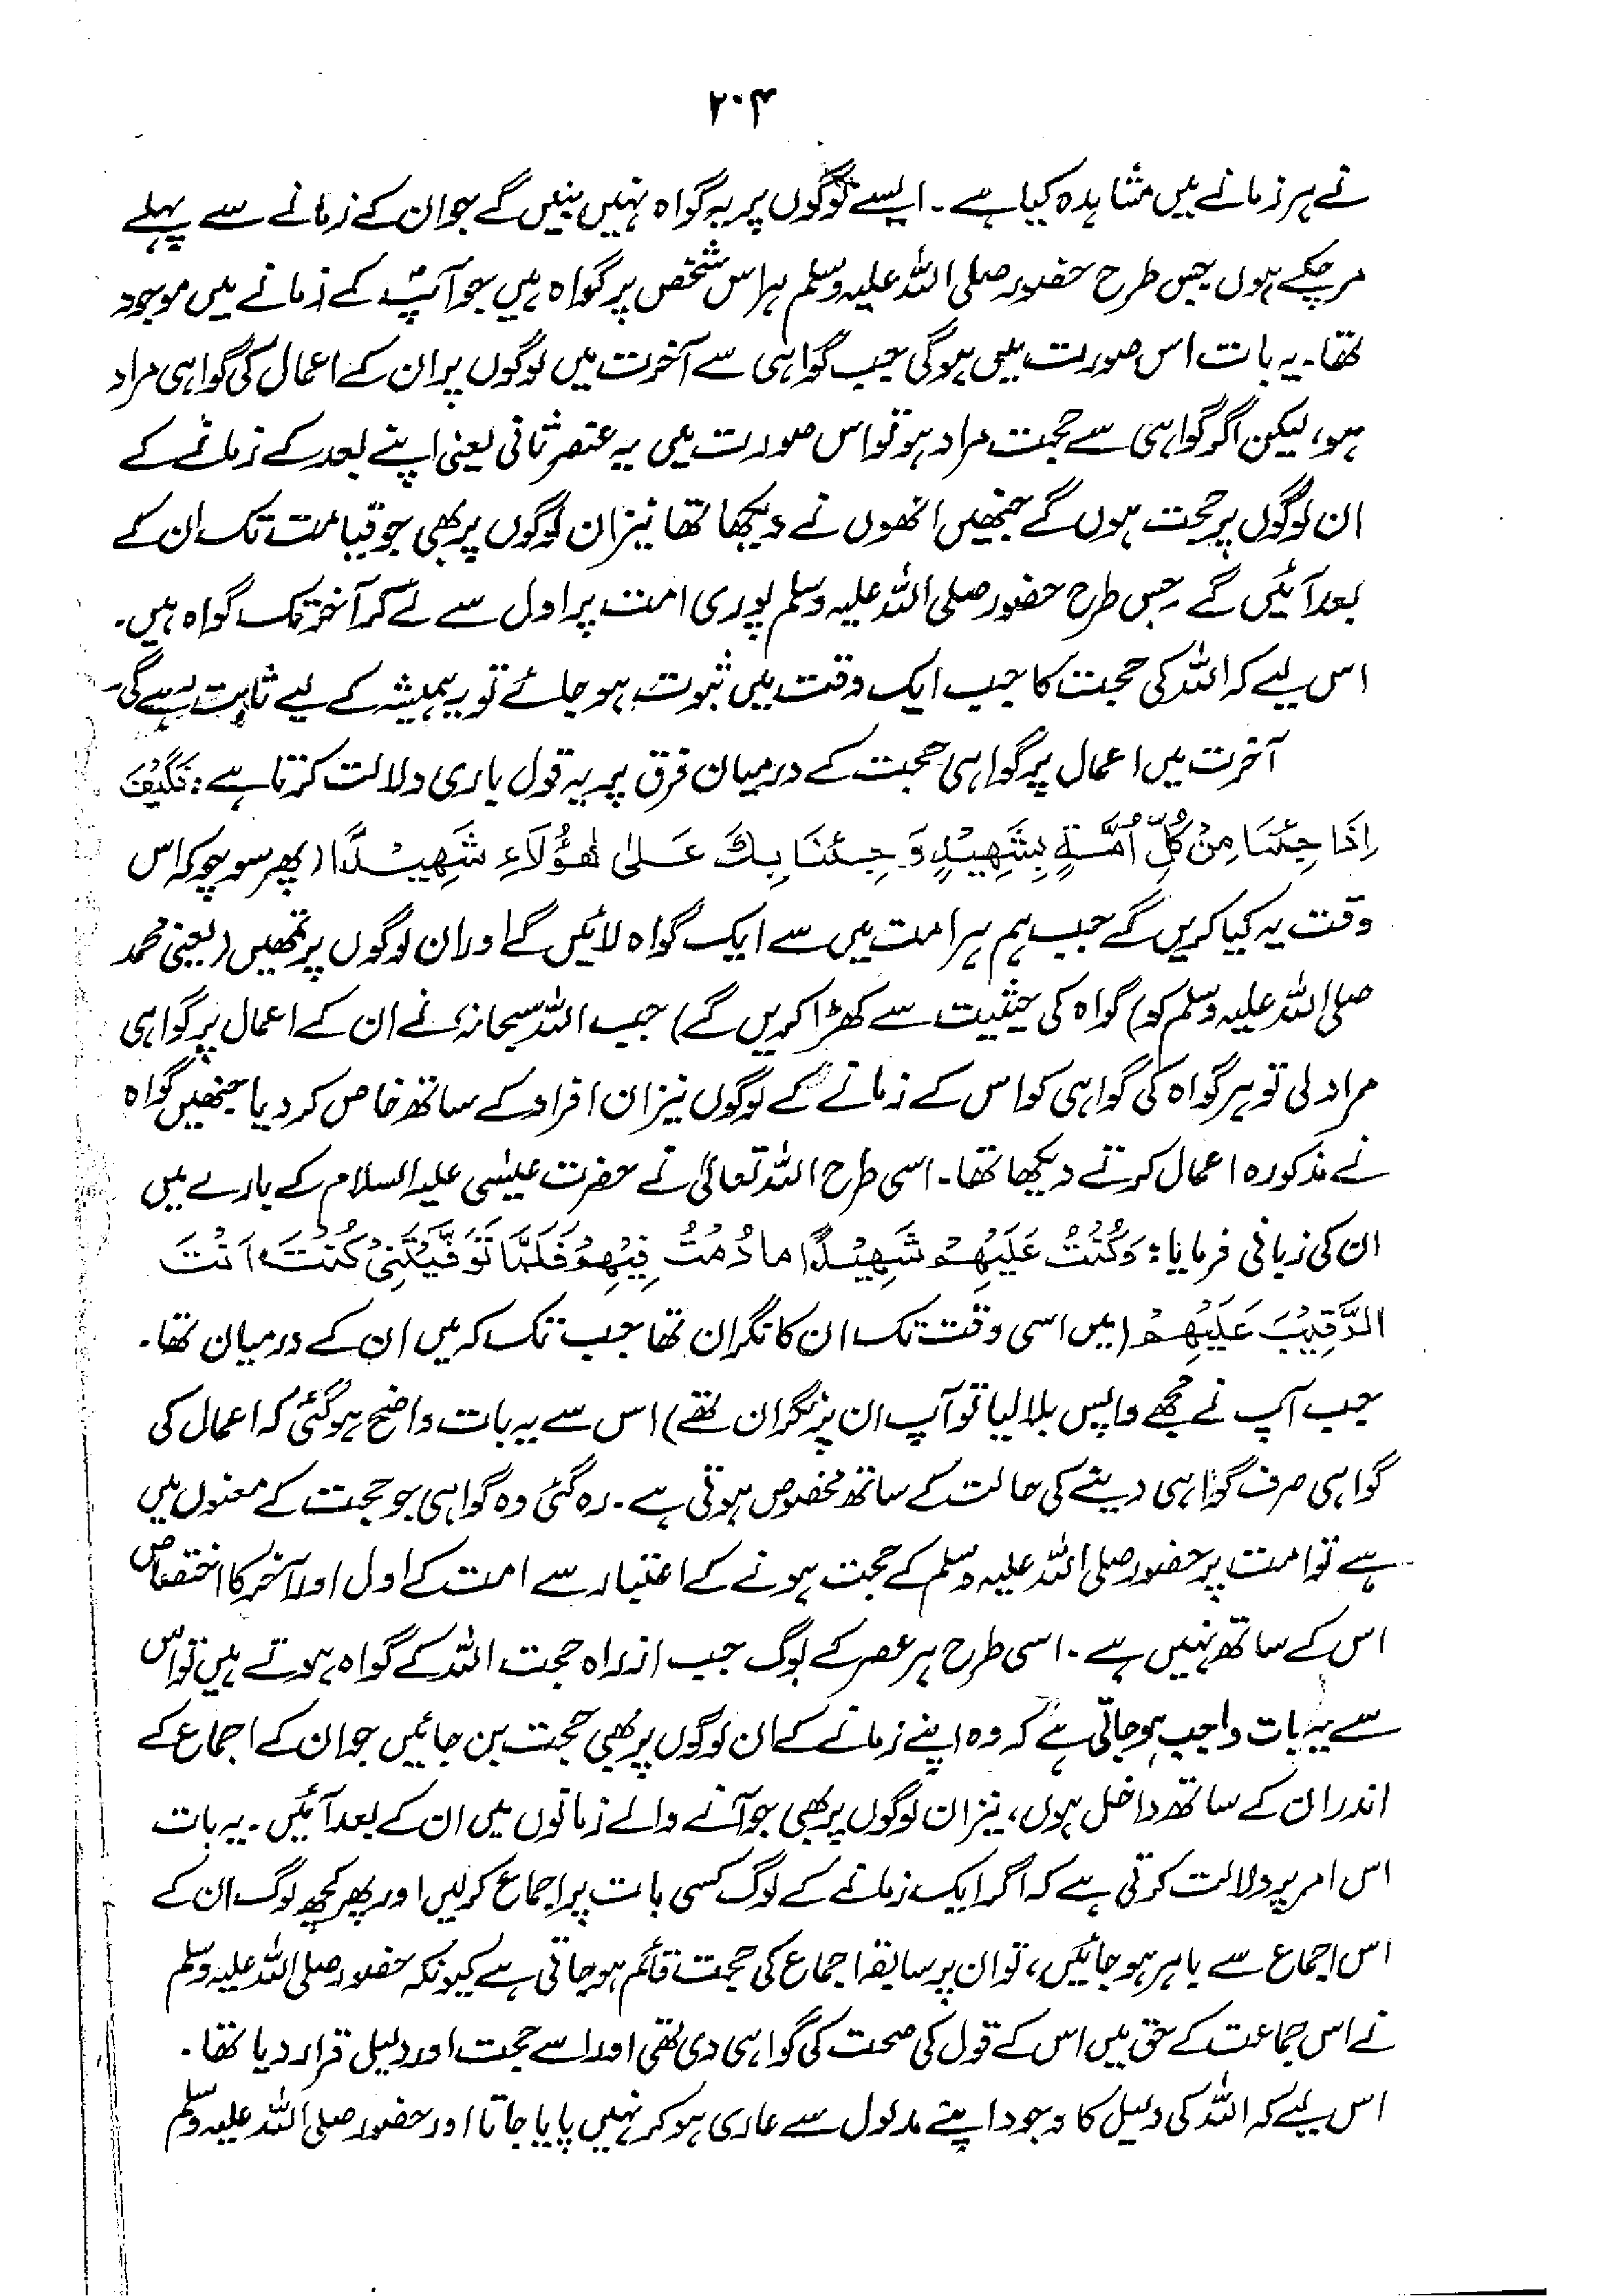 ۲۰۴
نے ہر زمانے میں مشاہدہ کیا ہے۔ ایسے لوگوں پر یہ گواہ نہیں بنیں گے جو ان کے زمانے سے پہلے
مر چکے ہوں جس طرح حضور صلی اللہ علیہ وسلم ہر اس شخص پر گواہ ہیں جو آپؐ کے زمانے میں موجود
تھا۔ یہ بات اس صورت میں ہوگی جب گواہی سے آخرت میں لوگوں پر ان کے اعمال کی گواہی مراد
ہو، لیکن اگر گواہی سے حجت مراد ہو تو اس صورت میں یہ عنصر ثانی یعنی اپنے بعد کے زمانے کے
ان لوگوں پر حجت ہوں گے جنھیں انھوں نے دیکھا تھا نیز ان لوگوں پر بھی جو قیامت تک ان کے
بعد آئیں گے۔ جس طرح حضور صلی اللہ علیہ وسلم پوری امت پر اول سے لے کر آخر تک گواہ ہیں۔
اس لیے کہ اللہ کی حجت کا جب ایک وقت میں ثبوت ہو جائے تو یہ ہمیشہ کے لیے ثابت رہے گی۔
آخرت میں اعمال پر گواہی حجت کے درمیان فرق پر یہ قول باری دلالت کرتا ہے: فَكَيْفَ
إِذَا جِئْنَا مِنْ كُلِّ أُمَّةٍ بِشَهِيْدٍ وَجِئْنَا بِكَ عَلىٰ هٰؤُلَاءِ شَهِيْدًا (پھر سوچو کہ اس
وقت یہ کیا کریں گے جب ہم ہر امت میں سے ایک گواہ لائیں گے اور ان لوگوں پر تمھیں (یعنی محمد
صلی اللہ علیہ وسلم کو) گواہ کی حیثیت سے کھڑا کریں گے) جب اللہ سبحانہٗ نے ان کے اعمال پر گواہی
مراد لی تو ہر گواہ کی گواہی کو اس کے زمانے کے لوگوں نیز ان افراد کے ساتھ خاص کر دیا جنھیں گواہ
نے مذکورہ اعمال کرتے دیکھا تھا۔ اسی طرح اللہ تعالیٰ نے حضرت عیسٰی علیہ السلام کے بارے میں
ان کی زبانی فرمایا: وَكُنْتُ عَلَيْهِمْ شَهِيْدًا مَا دُمْتُ فِيْهِمْ فَلَمَّا تَوَفَّيْتَنِيْ كُنْتَ اَنْتَ
الرَّقِيْبَ عَلَيْهِمْ (میں اسی وقت تک ان کا نگران تھا جب تک کہ میں ان کے درمیان تھا۔
جب آپ نے مجھے واپس بلا لیا تو آپ ان پر نگران تھے) اس سے یہ بات واضح ہوگئی کہ اعمال کی
گواہی صرف گواہی دینے کی حالت کے ساتھ مخصوص ہوتی ہے۔ رہ گئی وہ گواہی جو حجت کے معنوں میں
ہے تو امت پر حضور صلی اللہ علیہ وسلم کے حجت ہونے کے اعتبار سے امت کے اول اور آخر کا اختصاص
اس کے ساتھ نہیں ہے۔ اسی طرح ہر عصر کے لوگ جب از راہ حجت اللہ کے گواہ ہوتے ہیں تو اس
سے یہ بات واجب ہو جاتی ہے کہ وہ اپنے زمانے کے ان لوگوں پر بھی حجت بن جائیں جو ان کے اجماع کے
اندر ان کے ساتھ داخل ہوں، نیز ان لوگوں پر بھی جو آنے والے زمانوں میں ان کے بعد آئیں۔ یہ بات
اس امر پر دلالت کرتی ہے کہ اگر ایک زمانے کے لوگ کسی بات پر اجماع کرلیں اور پھر کچھ لوگ ان کے
اس اجماع سے باہر ہو جائیں، تو ان پر سابقہ اجماع کی حجت قائم ہو جاتی ہے کیونکہ حضور صلی اللہ علیہ وسلم
نے اس جماعت کے حق میں اس کے قول کی صحت کی گواہی دی تھی اور اسے حجت اور دلیل قرار دیا تھا۔
اس لیے کہ اللہ کی دلیل کا وجود اپنے مدلول سے عاری ہو کر نہیں پایا جاتا اور حضور صلی اللہ علیہ وسلم